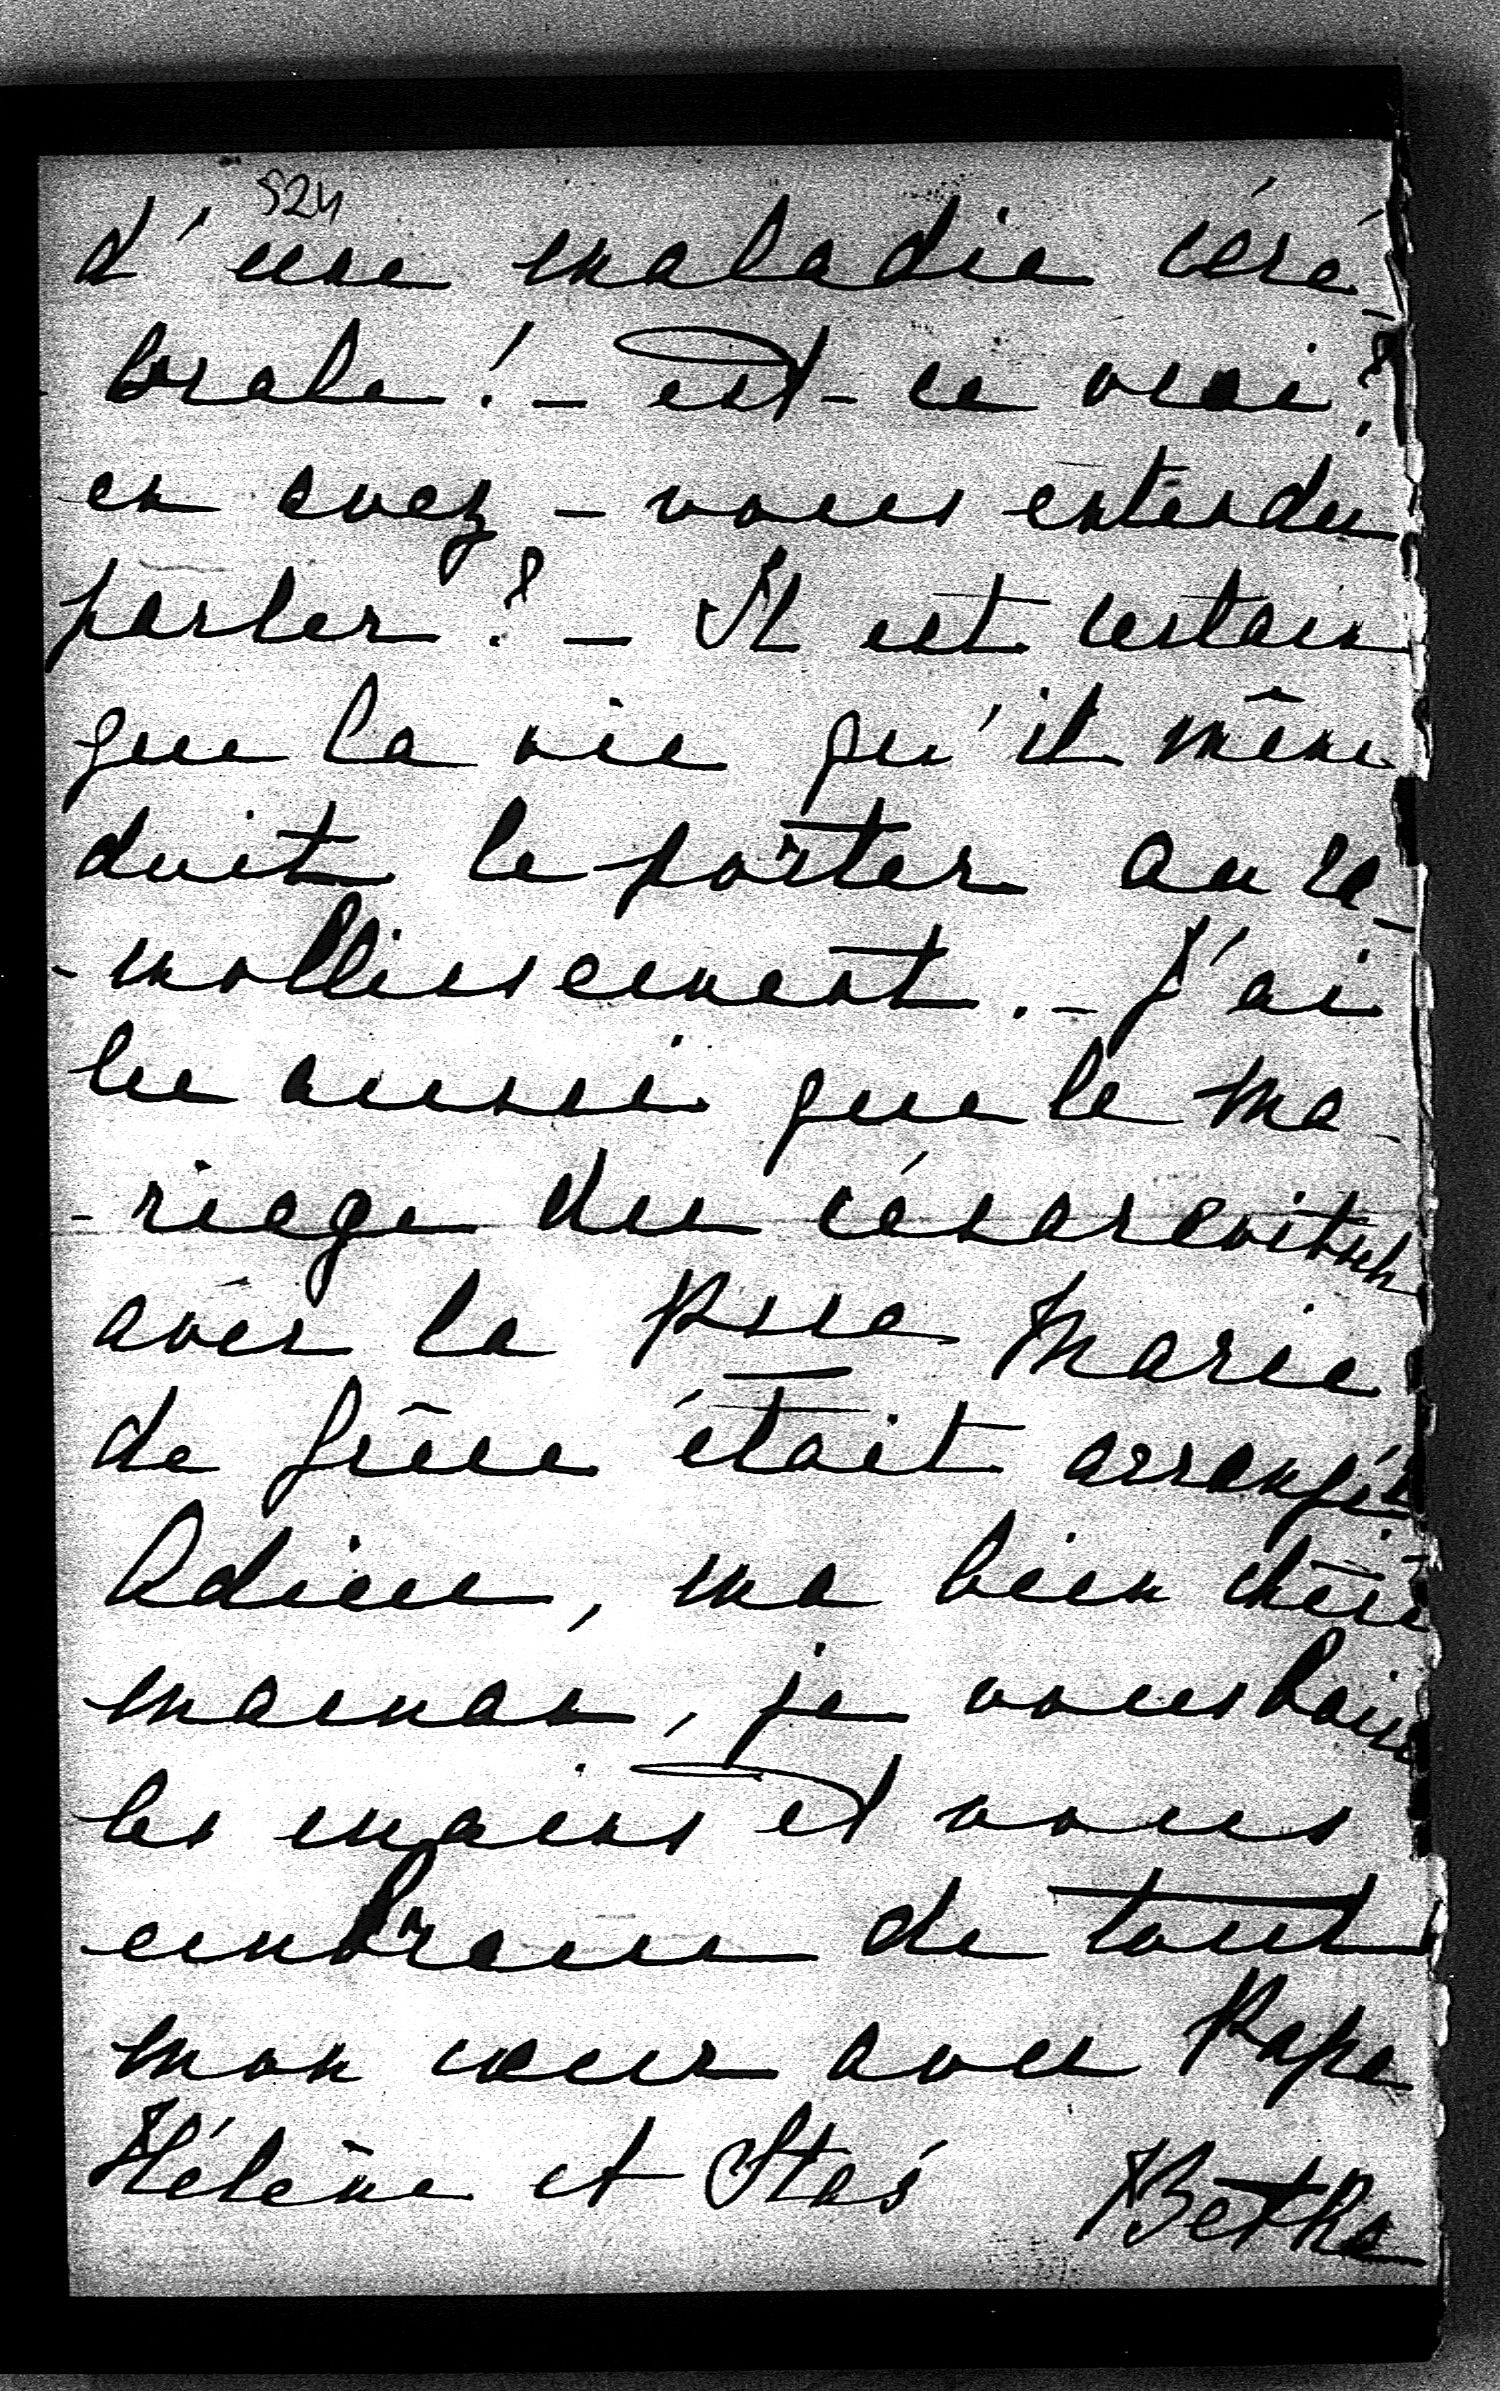 524
d'une maladie céré-
brale! – est-ce vrai?
en avez-vous entendu
parler? – Il est certain
que la vie qu'il mène
doit le porter au ra-
-mollissement. – J'ai
lu aussi que le ma-
-riage du césarevitsch
avec la Psse Marie
de Grèce était arrangé!
Adieu, ma bien chère
maman, je vous baise
les mains et vous
embrasse de tout
mon cœur avec Papa
Hélène et Stas
Bertha